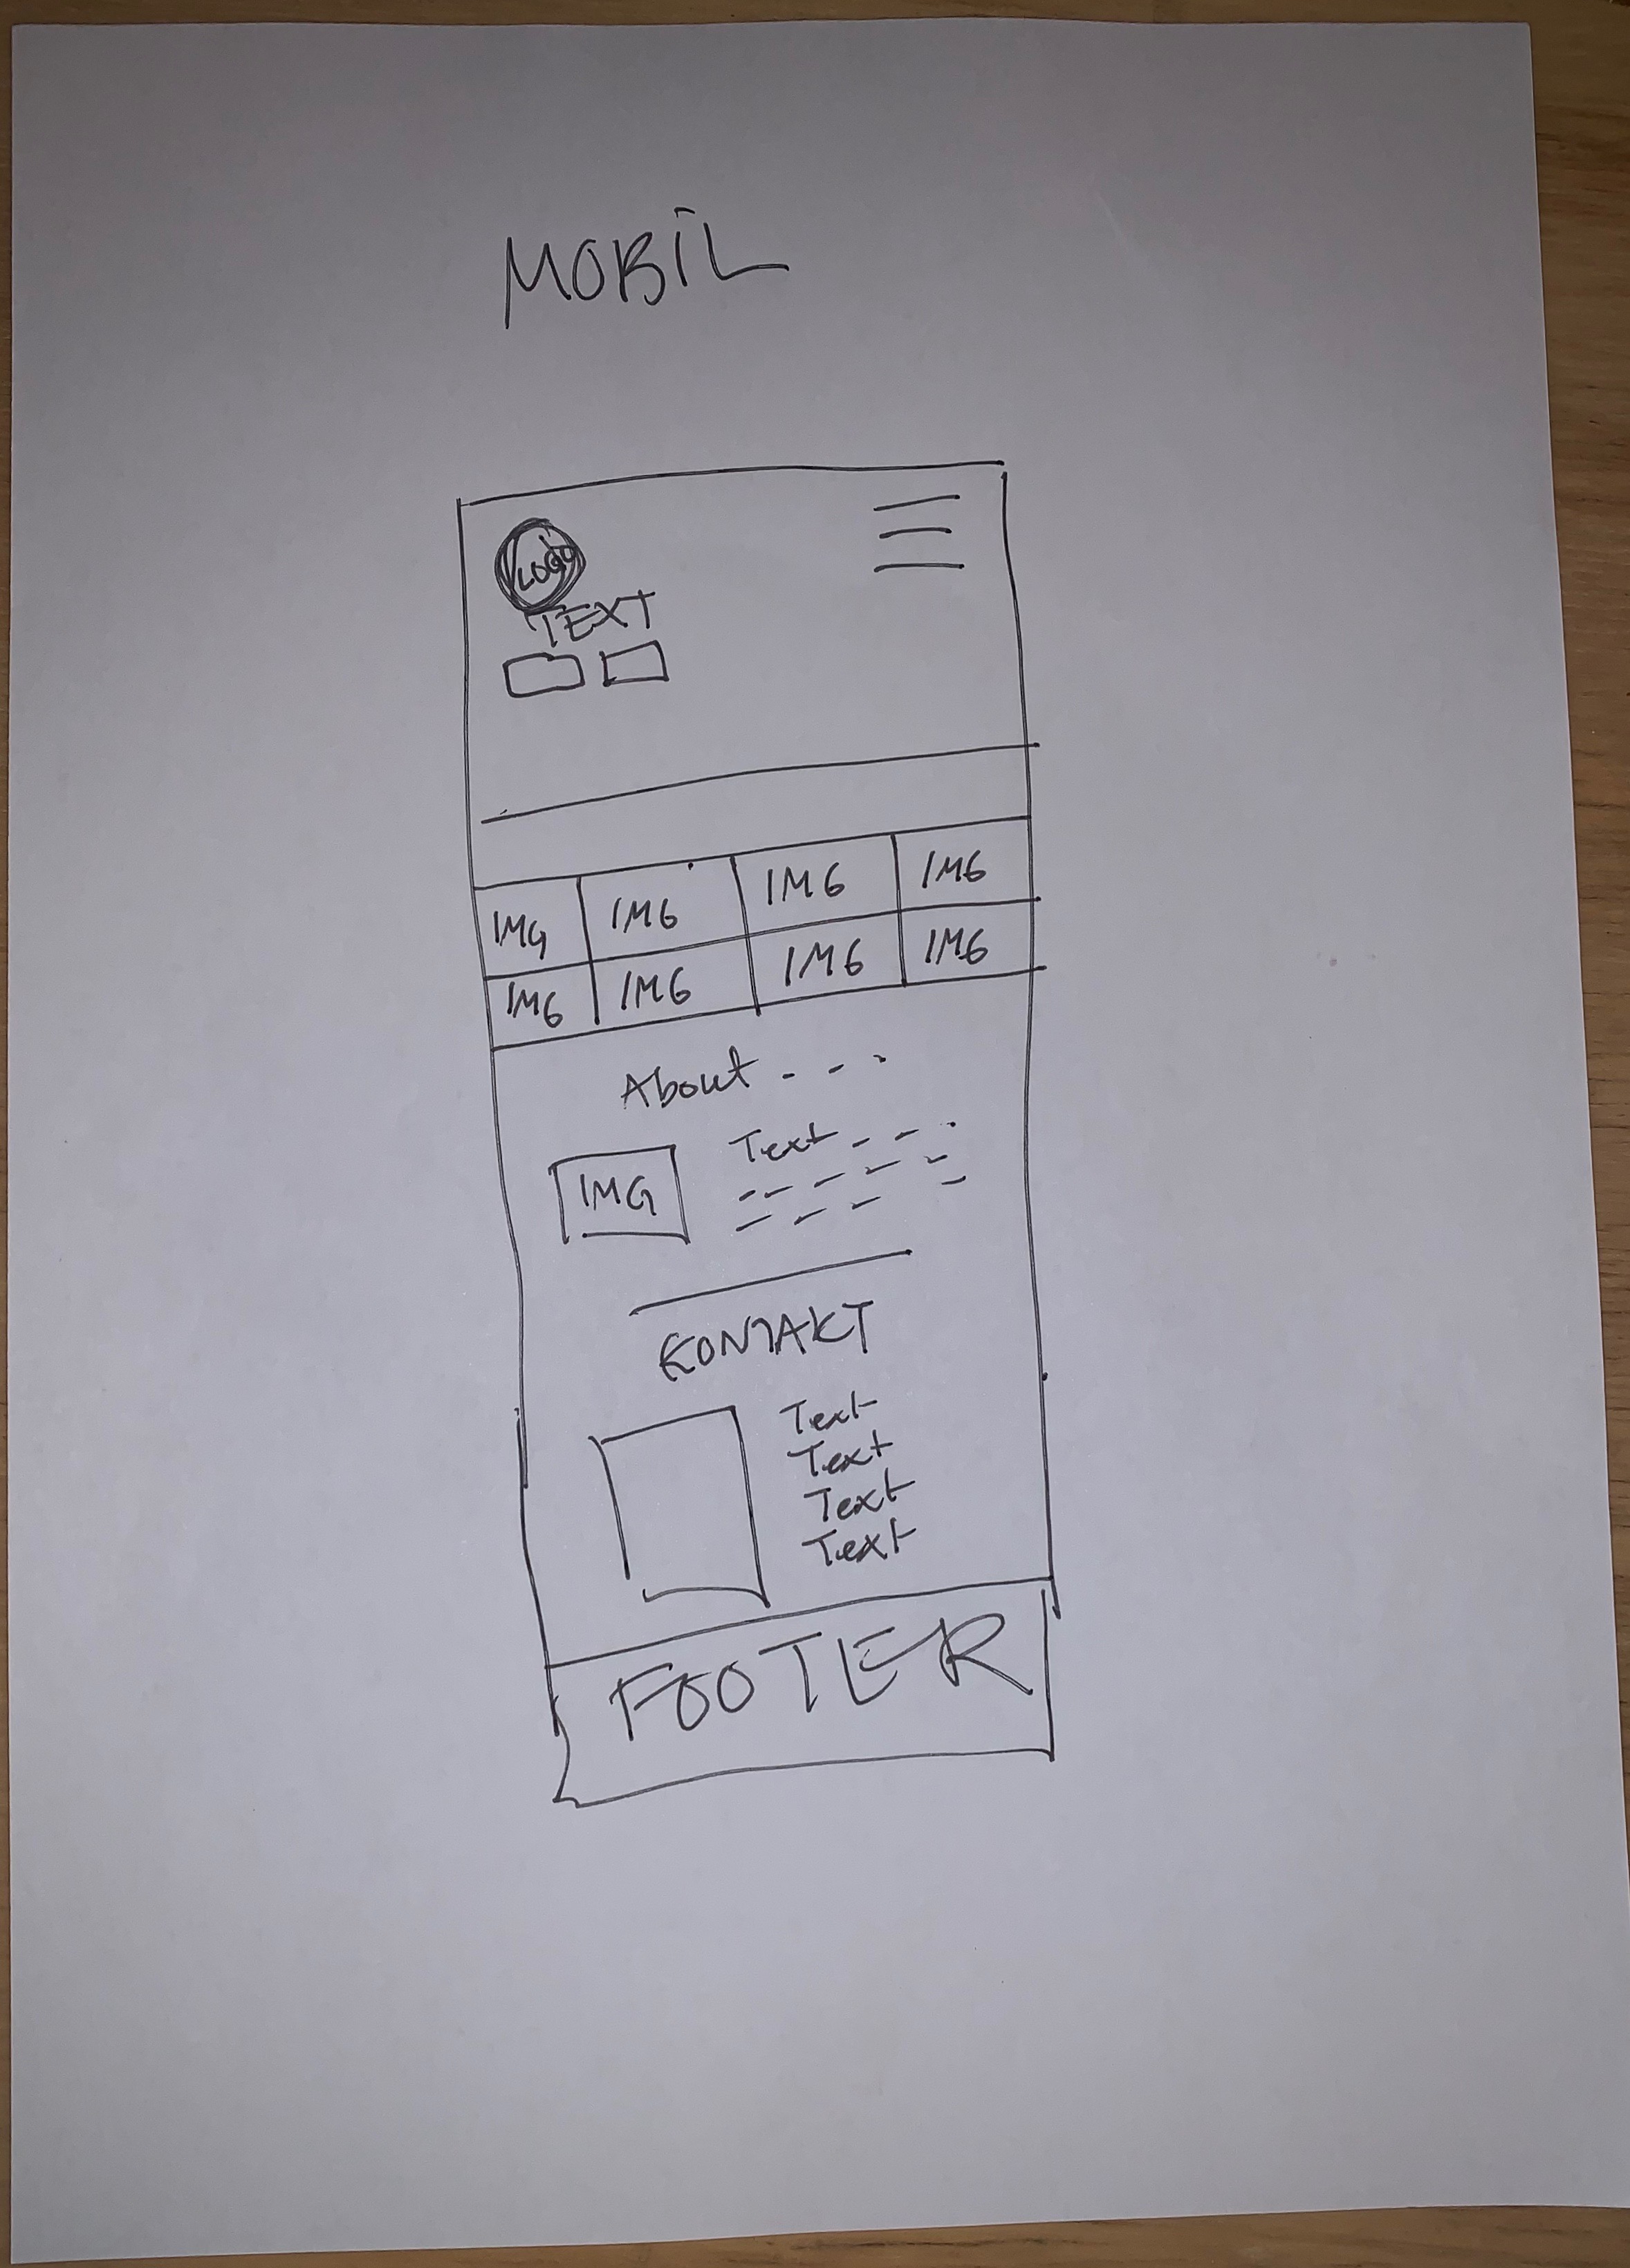 MOBIL
LOGO
TEXT
IMG IMG IMG IMG
IMG IMG IMG IMG
About - - -
Text - - -
IMG
KONTAKT
Text
Text
Text
Text
FOOTER